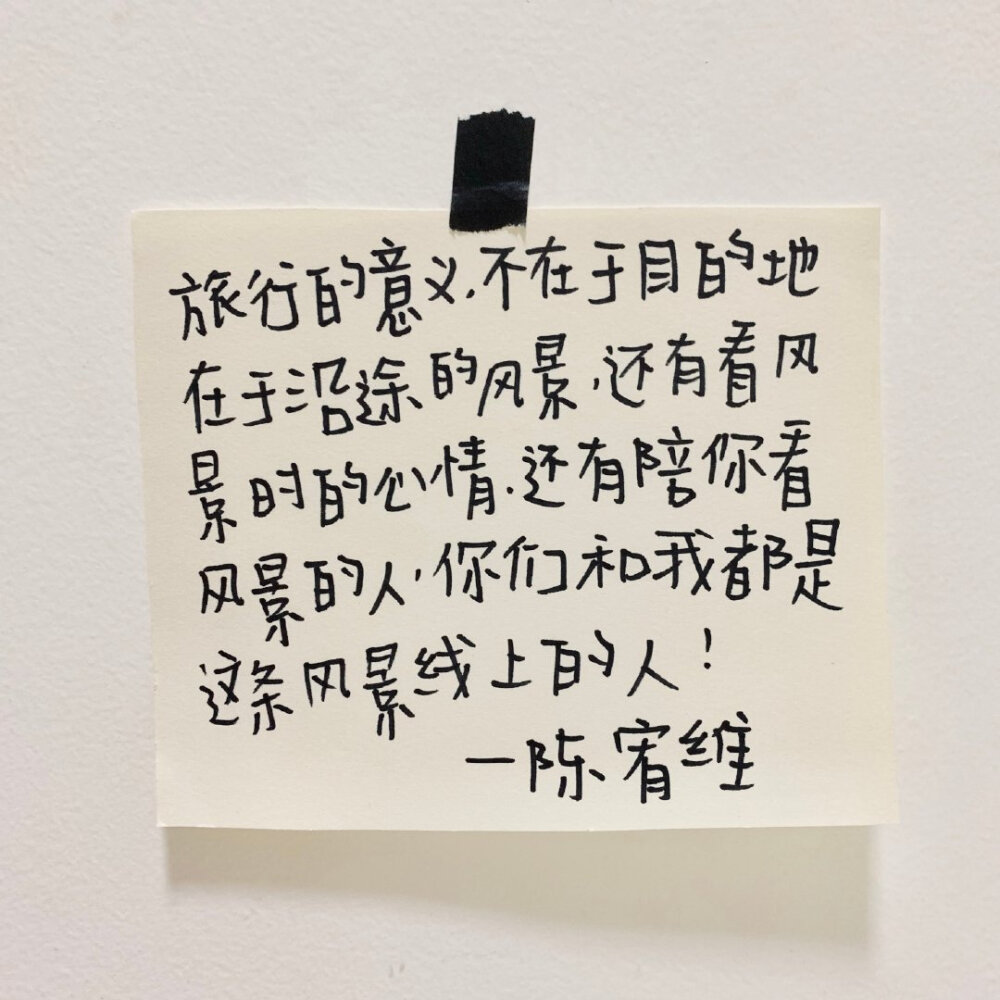 旅行的意义.不在于目的地
在于沿途的风景,还有看风
景时的心情.还有陪你看
风景的人,你们和我都是
这条风景线上的人!
—陈宥维